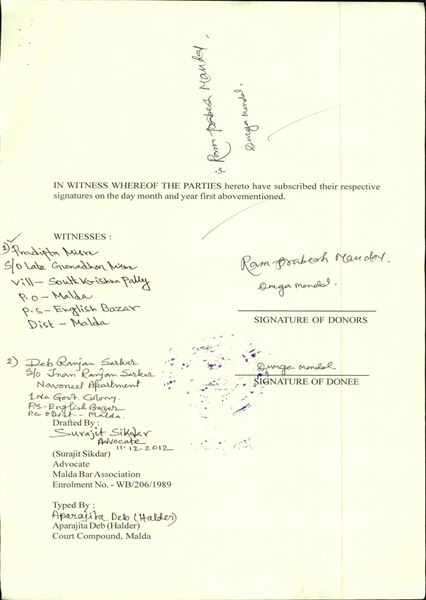 Ram prabesh Mandal.
Durga mondal.
-5-
IN WITNESS WHEREOF THE PARTIES hereto have subscribed their respective
signatures on the day month and year first abovementioned.
WITNESSES :
1) Pradipta Misra
S/O Late Gunadhar Misra
Vill - South Krishna Pally
P.O - Malda
P.S - English Bazar
Dist - Malda
Ram prabesh Mandal.
Durga mondal.
SIGNATURE OF DONORS
2) Deb Ranjan Sarkar
S/o Jnan Ranjan Sarkar
Navoneel Apartment
1 No Govt. Colony.
P.S - English Bazar
P.O & Dist - Malda.
Durga mondal
SIGNATURE OF DONEE
Drafted By :
Surajit Sikdar
Advocate
11.12.2012
(Surajit Sikdar)
Advocate
Malda Bar Association
Enrolment No. - WB/206/1989
Typed By :
Aparajita Deb (Halder)
Aparajita Deb (Halder)
Court Compound, Malda